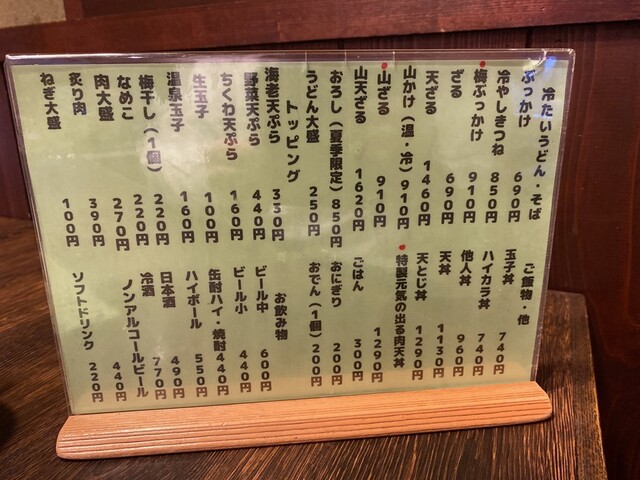 冷たいうどん・そば
ぶっかけ 690円
冷やしきつね 850円
梅ぶっかけ 910円
ざる 690円
天ざる 1460円
山かけ(温・冷) 910円
山ざる 910円
山天ざる 1620円
おろし(夏季限定) 850円
うどん大盛 250円
トッピング
海老天ぷら 330円
野菜天ぷら 440円
ちくわ天ぷら 160円
生玉子 100円
温泉玉子 160円
梅干し(1個) 220円
なめこ 220円
肉大盛 270円
炙り肉 390円
ねぎ大盛 100円
ご飯物・他
玉子丼 740円
ハイカラ丼 740円
他人丼 960円
天丼 1130円
天とじ丼 1290円
特製元気の出る肉天丼 1290円
ごはん 300円
おにぎり 200円
おでん(1個) 200円
お飲み物
ビール中 600円
ビール小 440円
缶酎ハイ・焼酎 440円
ハイボール 550円
日本酒 490円
冷酒 770円
ノンアルコールビール 440円
ソフトドリンク 220円